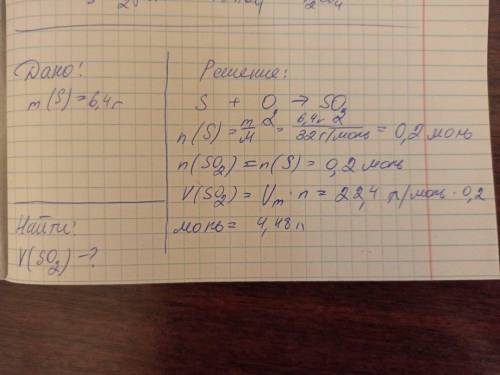 Дано:
m(S)=6,4г
Найти:
V(SO2)-?
Решение:
S + O2 → SO2
n(S) = m/M = 6,4г/32г/моль = 0,2 моль
n(SO2) = n(S) = 0,2 моль
V(SO2) = Vm · n = 22,4 л/моль · 0,2
моль = 4,48л